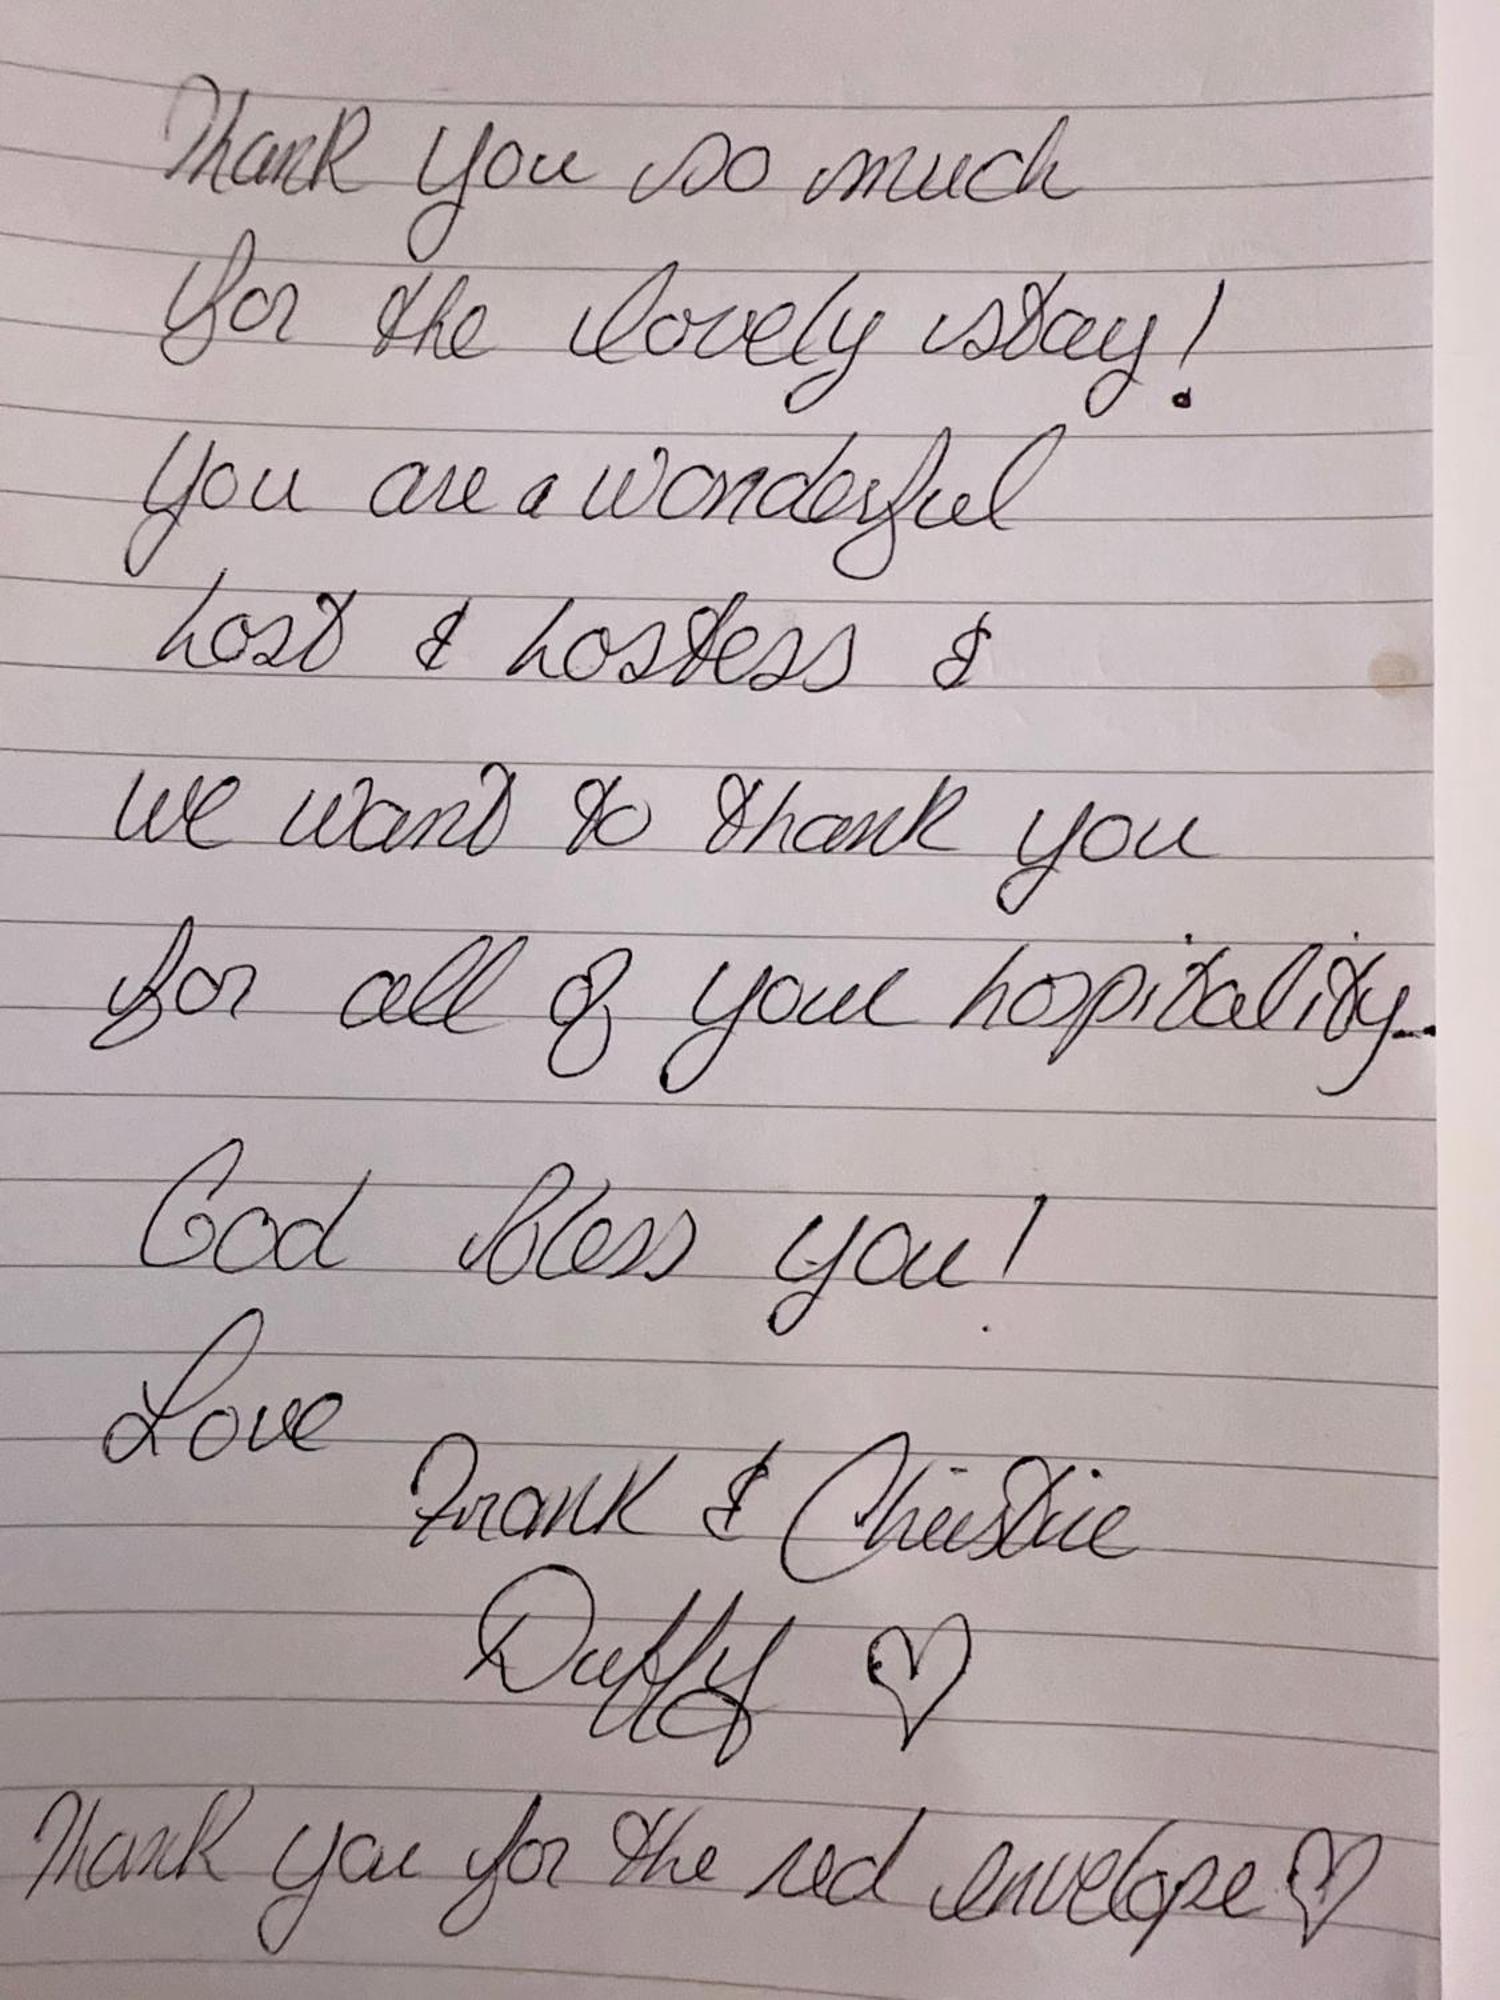 Thank you so much
for the lovely stay!
you are a wonderful
host & hostess &
we want to thank you
for all of your hospitality..
God bless you!
Love
Frank & Christie
Duffy ♡
Thank you for the red envelope ♡